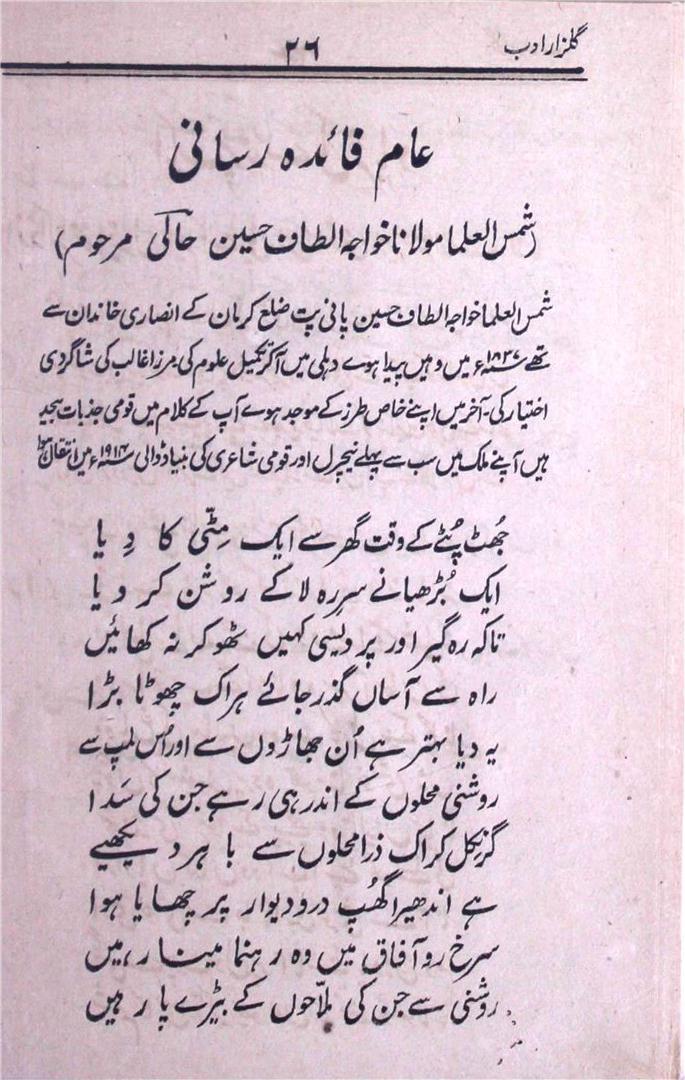 گلزار ادب
۲۶
عام فائدہ رسانی
(شمس العلما مولانا خواجہ الطاف حسین حالی مرحوم)
شمس العلما خواجہ الطاف حسین پانی پت ضلع کرمان کے انصاری خاندان سے
تھے ۱۸۳۷ء میں وہیں پیدا ہوے دہلی میں آکر تکمیل علوم کی مرزا غالب کی شاگردی
اختیار کی۔ آخر میں اپنے خاص طرز کے موجد ہوے آپ کے کلام میں قومی جذبات بیحد
ہیں آپنے ملک میں سب سے پہلے نیچرل اور قومی شاعری کی بنیاد ڈالی ۱۹۱۴ء میں انتقال ہوا
جُھٹ پُٹے کے وقت گھر سے ایک مِٹّی کا دِیا
ایک بُڑھیا نے سرِرہ لا کے روشن کر دیا
تاکہ رہ گیر اور پردیسی کہیں ٹھوکر نہ کھائیں
راہ سے آساں گذر جائے ہر اک چھوٹا بڑا
یہ دیا بہتر ہے اُن جھاڑوں سے اور اُس لمپ سے
روشنی محلوں کے اندر ہی رہے جن کی سَدا
گر نکل کر اک ذرا محلوں سے باہر دیکھیے
ہے اندھیرا گھُپ در و دیوار پر چھایا ہوا
سرخ رو آفاق میں وہ رہنما مینار ہیں
روشنی سے جن کی ملاّحوں کے بیڑے پار ہیں